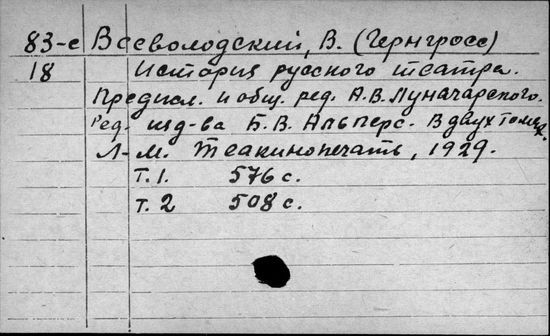 83-е Всеволодский, В. (Гернгросс)
18 История русского театра.
Предисл. и общ. ред. А.В. Луначарского.
Ред. изд-ва Б.В. Алперс. В двух томах.
Л.-М. Теакинопечать, 1929.
т. 1. 576 с.
т. 2 508 с.